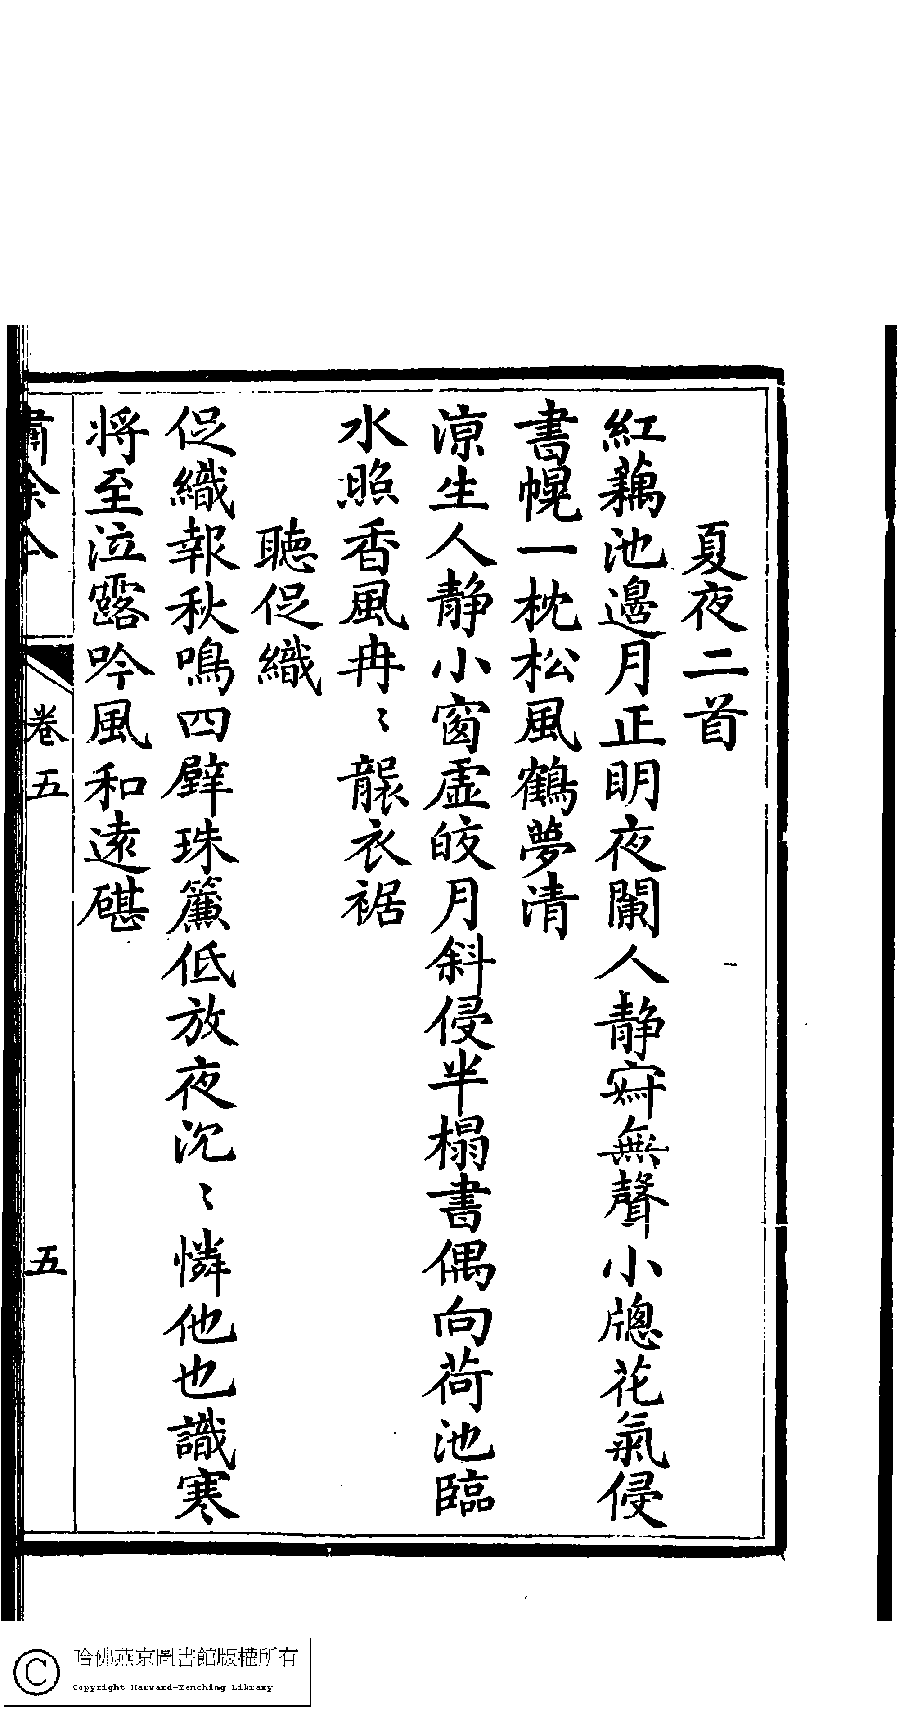 夏夜二首
紅藕池邊月正明夜闌人靜寂無聲小牕花氣侵
書幌一枕松風鶴夢清
凉生人靜小窗虛皎月斜侵半榻書偶向荷池臨
水照香風冉〻襲衣裾
聽促織
促織報秋鳴四壁珠簾低放夜沉〻憐他也識寒
將至泣露吟風和遠碪
卷五
五
哈佛燕京圖書館版權所有
Copyright Harvard-Yenching Library